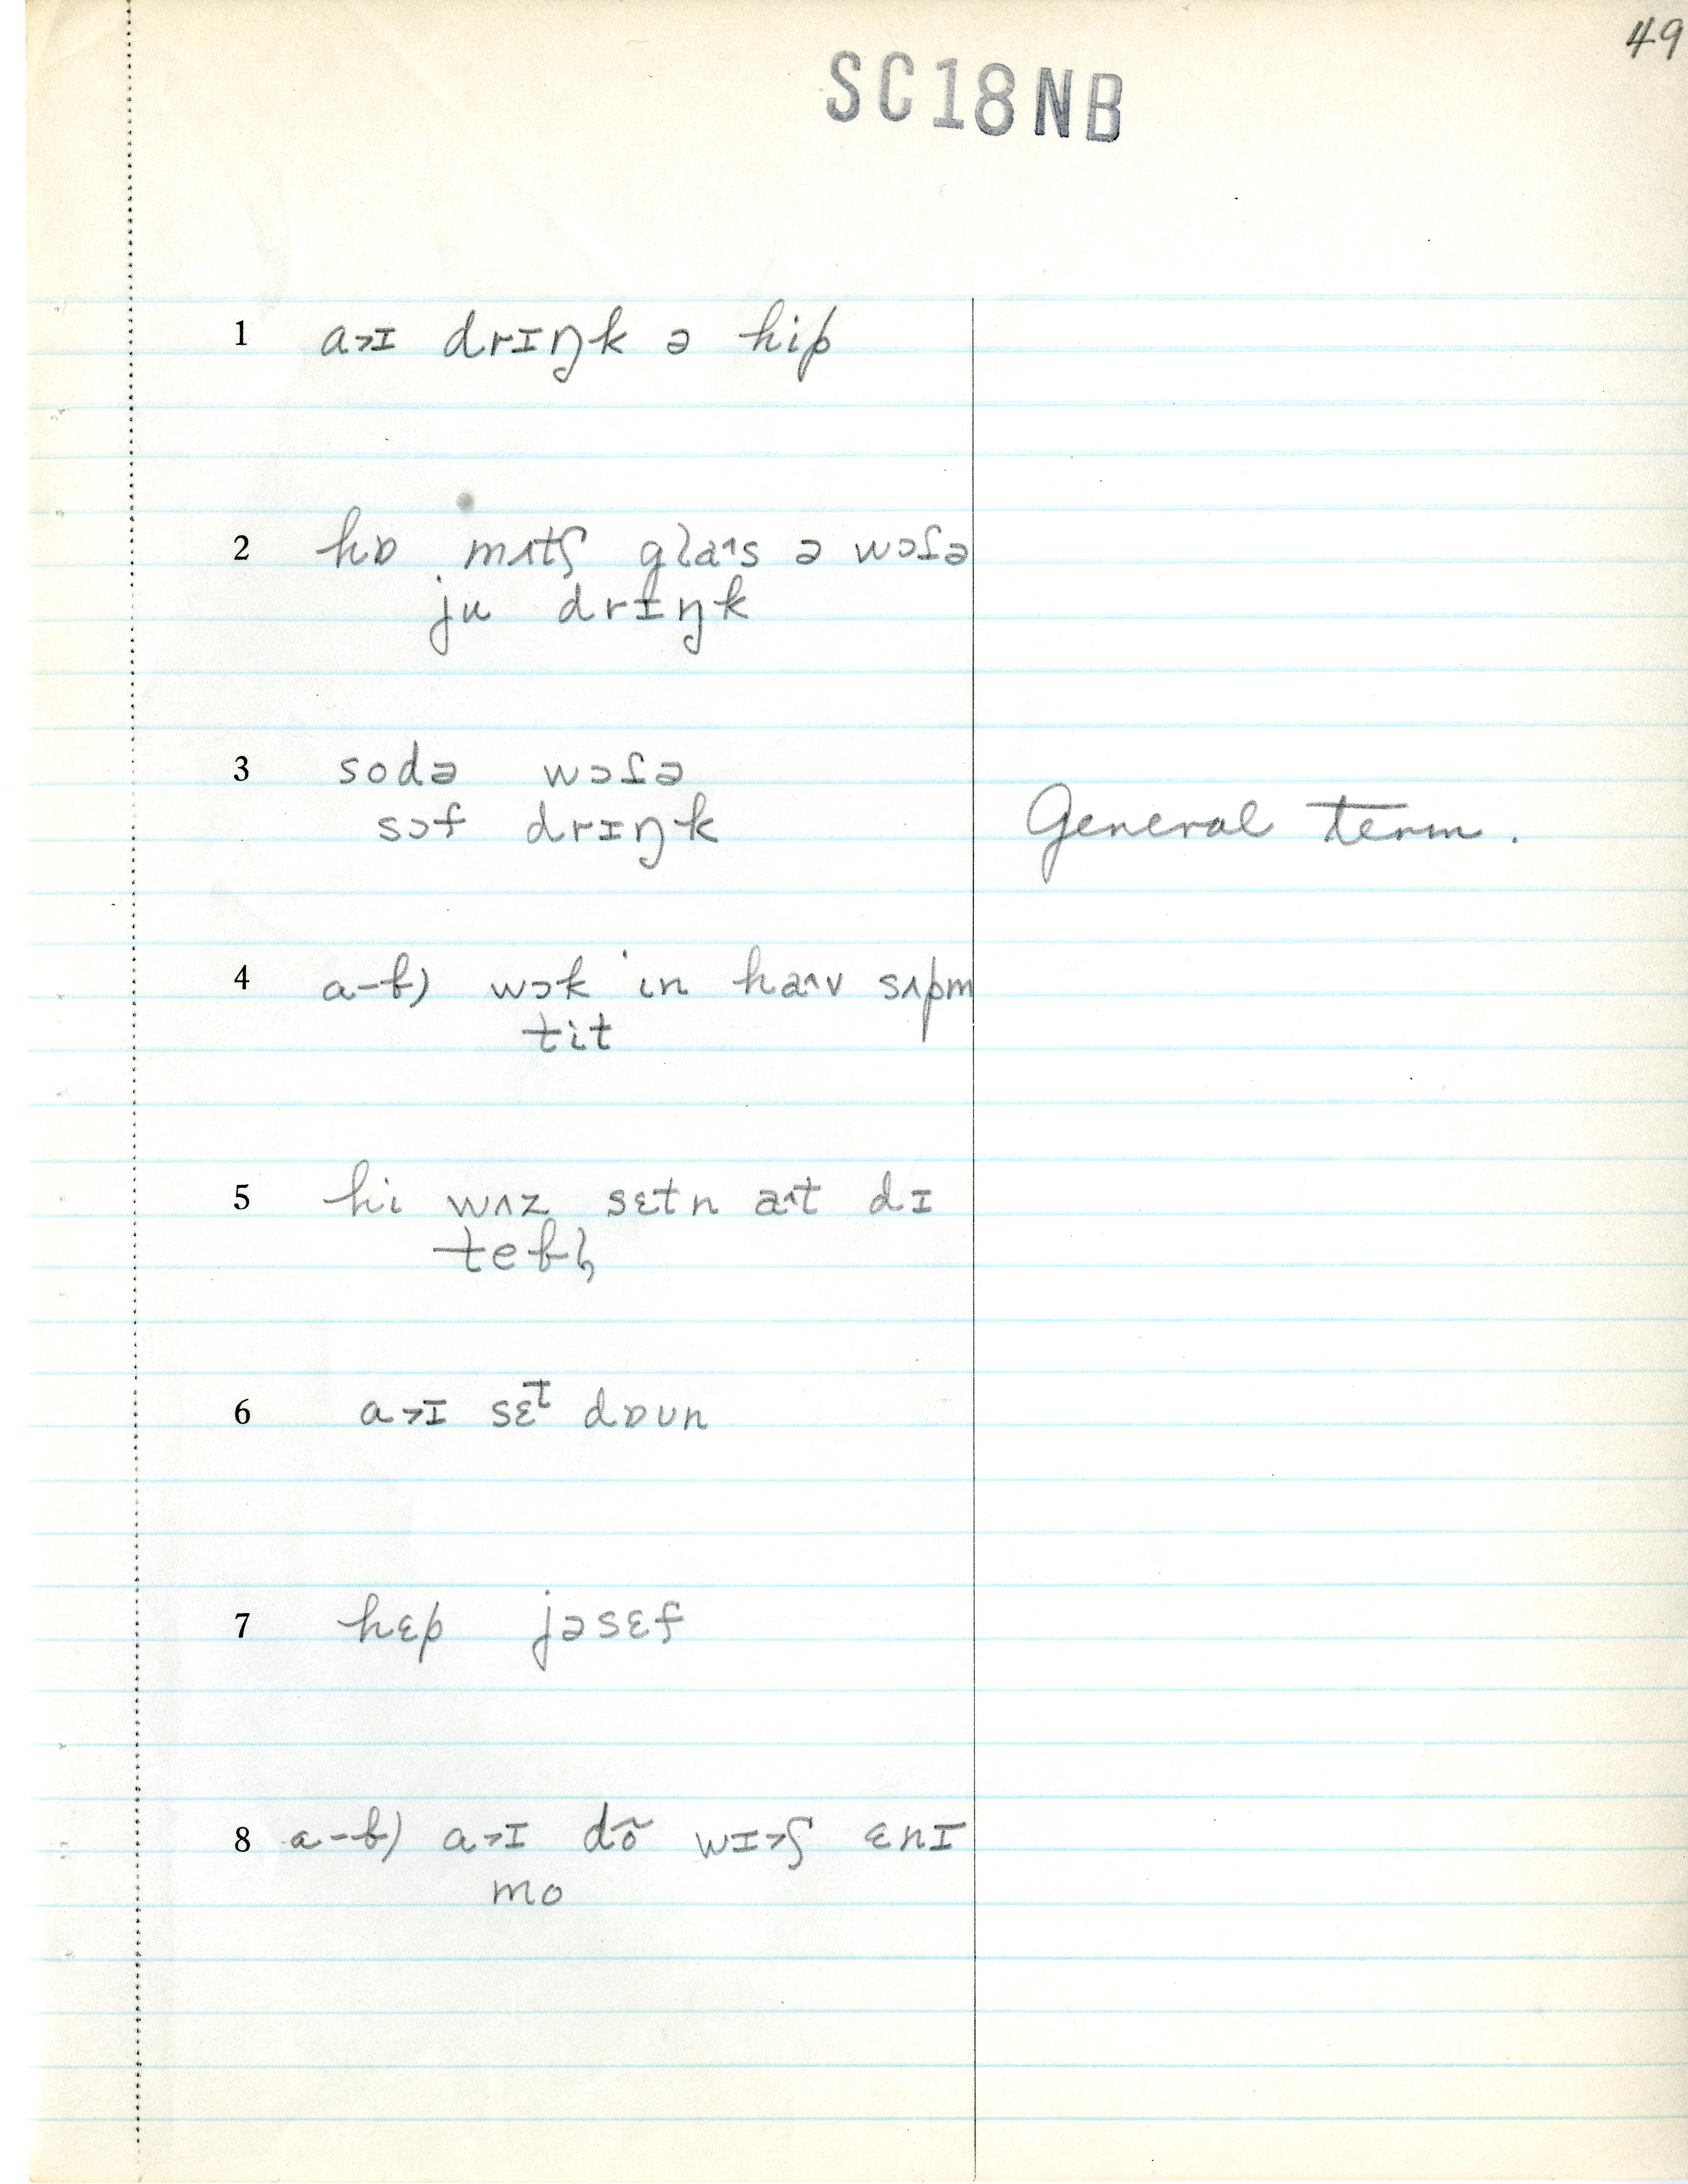 49
SC18NB
1 a˃ɪ drɪŋk ə hip
2 hɒ mʌtʃ glaˆs ə wɔɾə
ju drɪŋk
3 sodə wɔɾə
sɔf drɪŋk General term.
4 a-b) wɔk in haˆv sʌpm
tit
5 hi wʌz sɛtn aˆt dɪ
tebl̩
6 a˃ɪ sɛᵗ dɒun
7 hɛp jəsɛf
8 a-b) a˃ɪ dõ wɪ˃ʃ ɛnɪ
mo